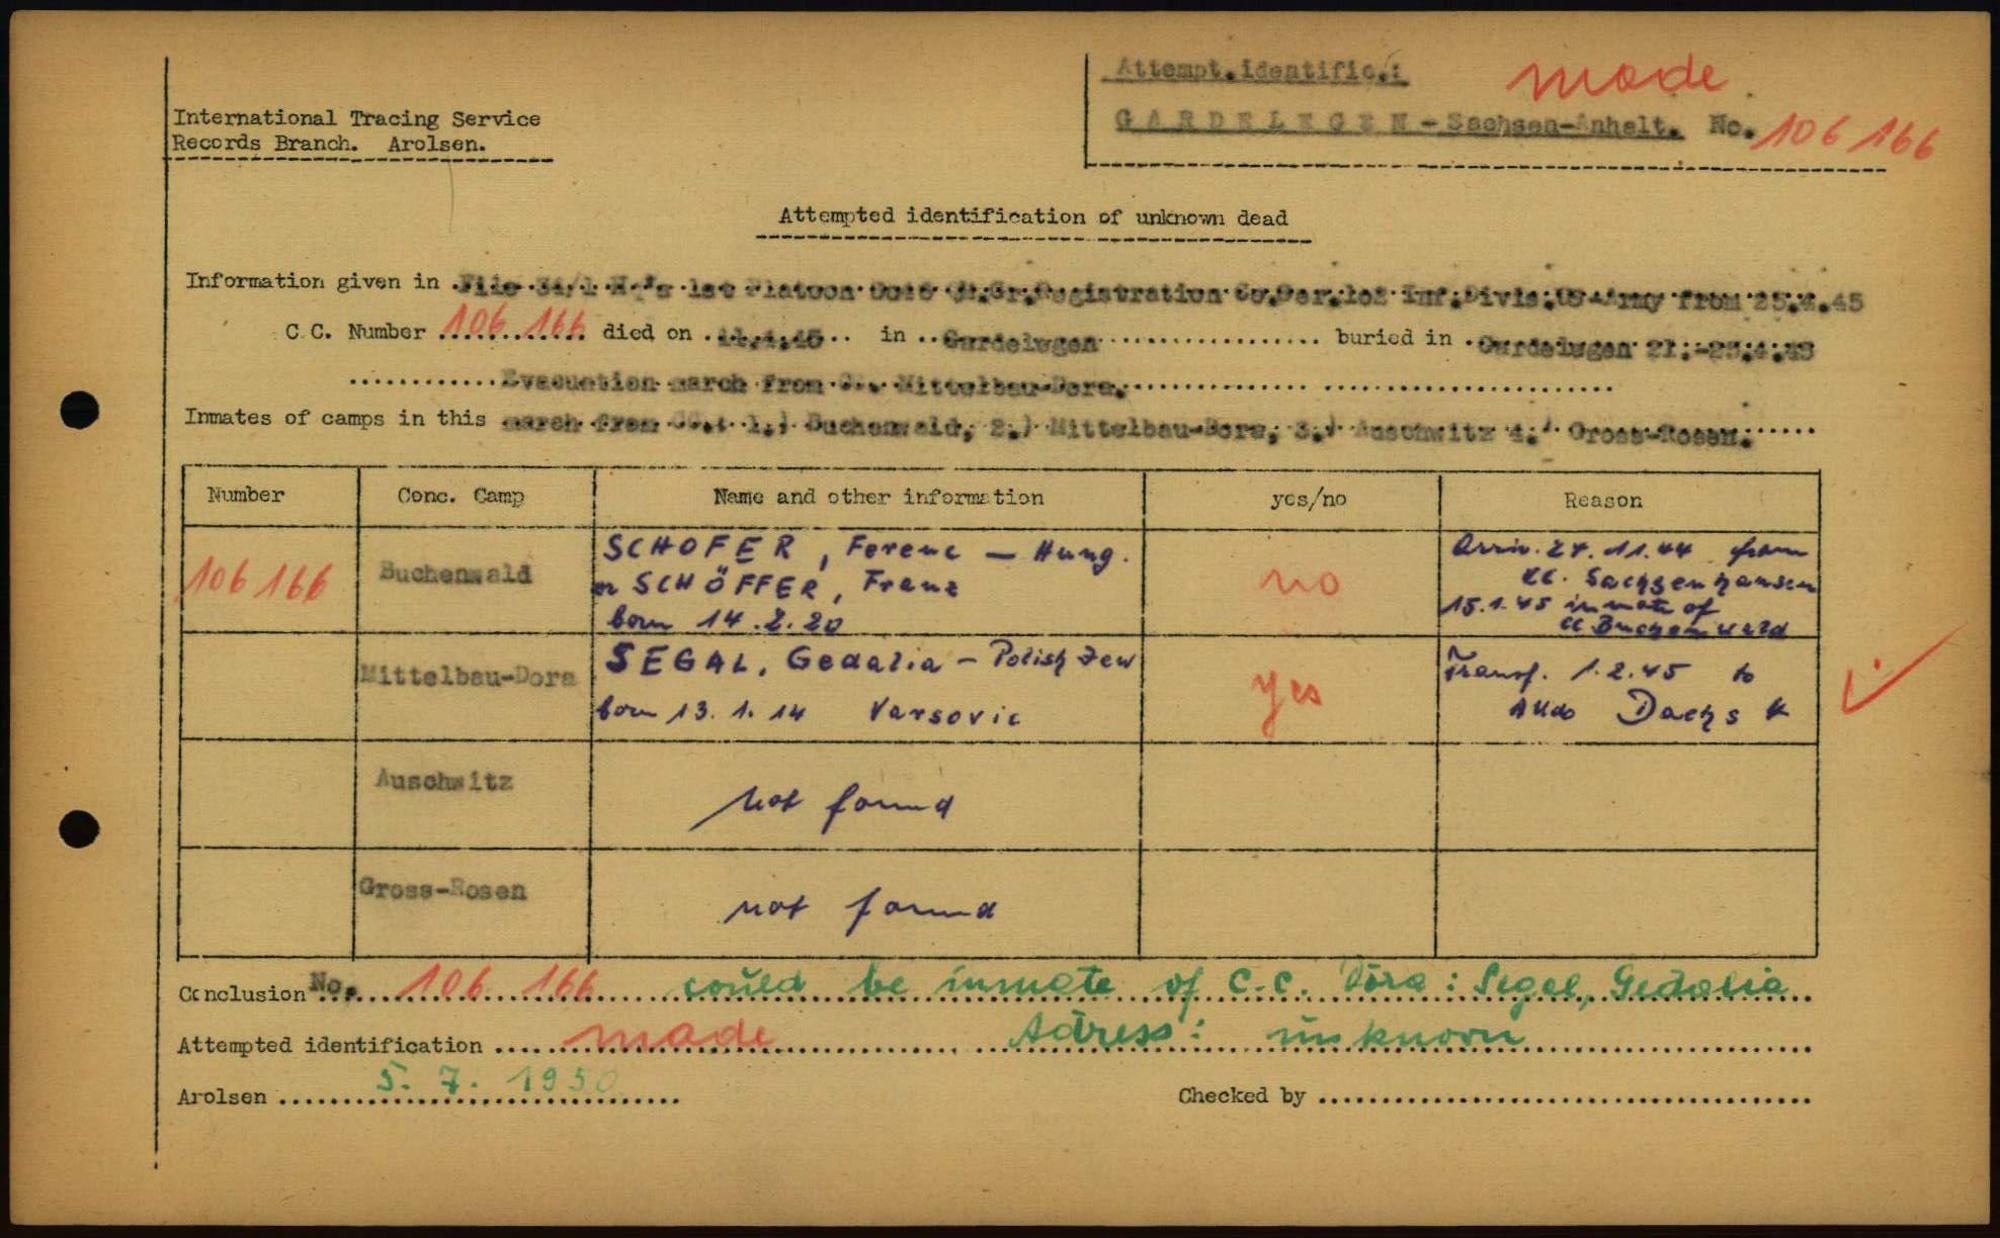 Attempt.identific.: made
GARDELEGEN - Sachsen-Anhalt. No. 106 166
International Tracing Service
Records Branch. Arolsen.
Attempted identification of unknown dead
Information given in File 1st Platoon Gr.Registration Co. 102 Inf.Divis.US-Army from 25.4.45
C.C. Number 106 166 died on in Gardelegen buried in Gardelegen 21.-25.4.45
Evacuation march from Mittelbau-Dora.
Inmates of camps in this march from CC.: 1.) Buchenwald, 2.) Mittelbau-Dora, 3.) Auschwitz 4.) Gross-Rosen.
Number Conc. Camp Name and other information yes/no Reason
106 166 Buchenwald SCHOFER, Ferenc — Hung.
or SCHÖFFER, Franz
born 14.2.20
no
Arriv. 27.11.44 from
CC. Sachsenhausen
15.1.45 inmate of
CC Buchenwald
Mittelbau-Dora SEGAL, Gedalia - Polish Jew
born 13.1.14 Varsovie
yes
Transf. 1.2.45 to
AKdo Dachs
Auschwitz not found
Gross-Rosen not found
Conclusion No. 106 166 could be inmate of C.C. Dora: Segal, Gedalia
Attempted identification made Adress: unknown
Arolsen 5. 7. 1950 Checked by